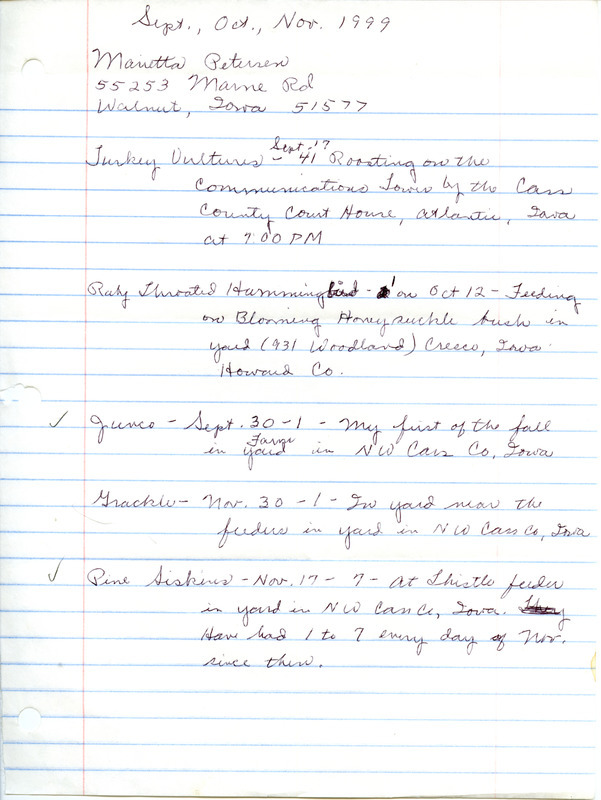 Sept., Oct., Nov. 1999
Marietta Petersen
55253 Marne Rd
Walnut, Iowa 51577
Turkey Vultures - Sept. 17 41 Roosting on the
Communications Tower by the Cass
County Court House, Atlantic, Iowa
at 7:00 PM
Ruby Throated Hummingbird - 1 on Oct 12 - Feeding
on Blooming Honeysuckle bush in
yard (931 Woodland) Cresco, Iowa
Howard Co.
✓ Junco - Sept. 30 - 1 - My first of the fall
in Farm yard in NW Cass Co, Iowa
Grackle - Nov. 30 - 1 - In yard near the
feeders in yard in NW Cass Co, Iowa
✓ Pine Siskins - Nov. 17 - 7 - At Thistle feeder
in yard in NW Cass Co, Iowa. They
Have had 1 to 7 every day of Nov.
since then.